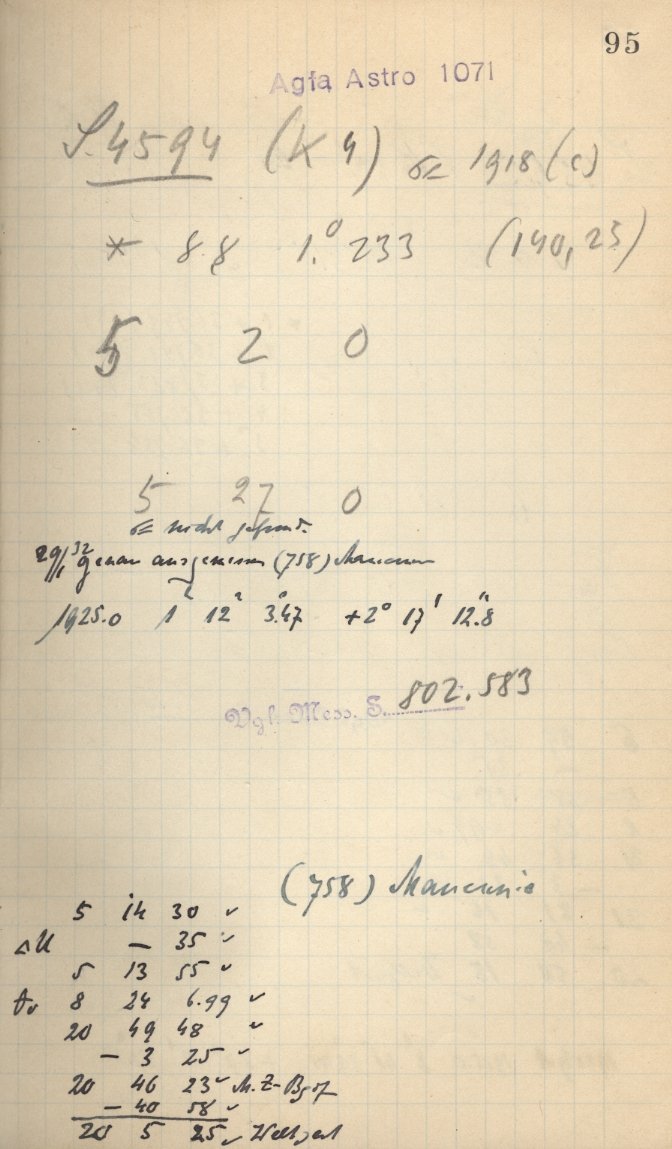 95
Agfa Astro 1071
S.4594 (K 4) 1918 (c)
* 8.8 1.° 233 (140,23)
5 2 0
5 27 0
nicht gefund.
29/1 32 genau ausgemessen (758) Mancunia
1925.0 1h 12m 3.s47 +2° 17' 12."8
Vgl. Mess. S. 802.583
(758) Mancunia
5 14 30 ✓
ΔU — 35 ✓
5 13 55 ✓
8 24 6.99 ✓
20 49 48 ✓
— 3 25 ✓
20 46 23 ✓ M.Z-Bgdf
— 40 58 ✓
20 5 25 ✓ Weltzeit